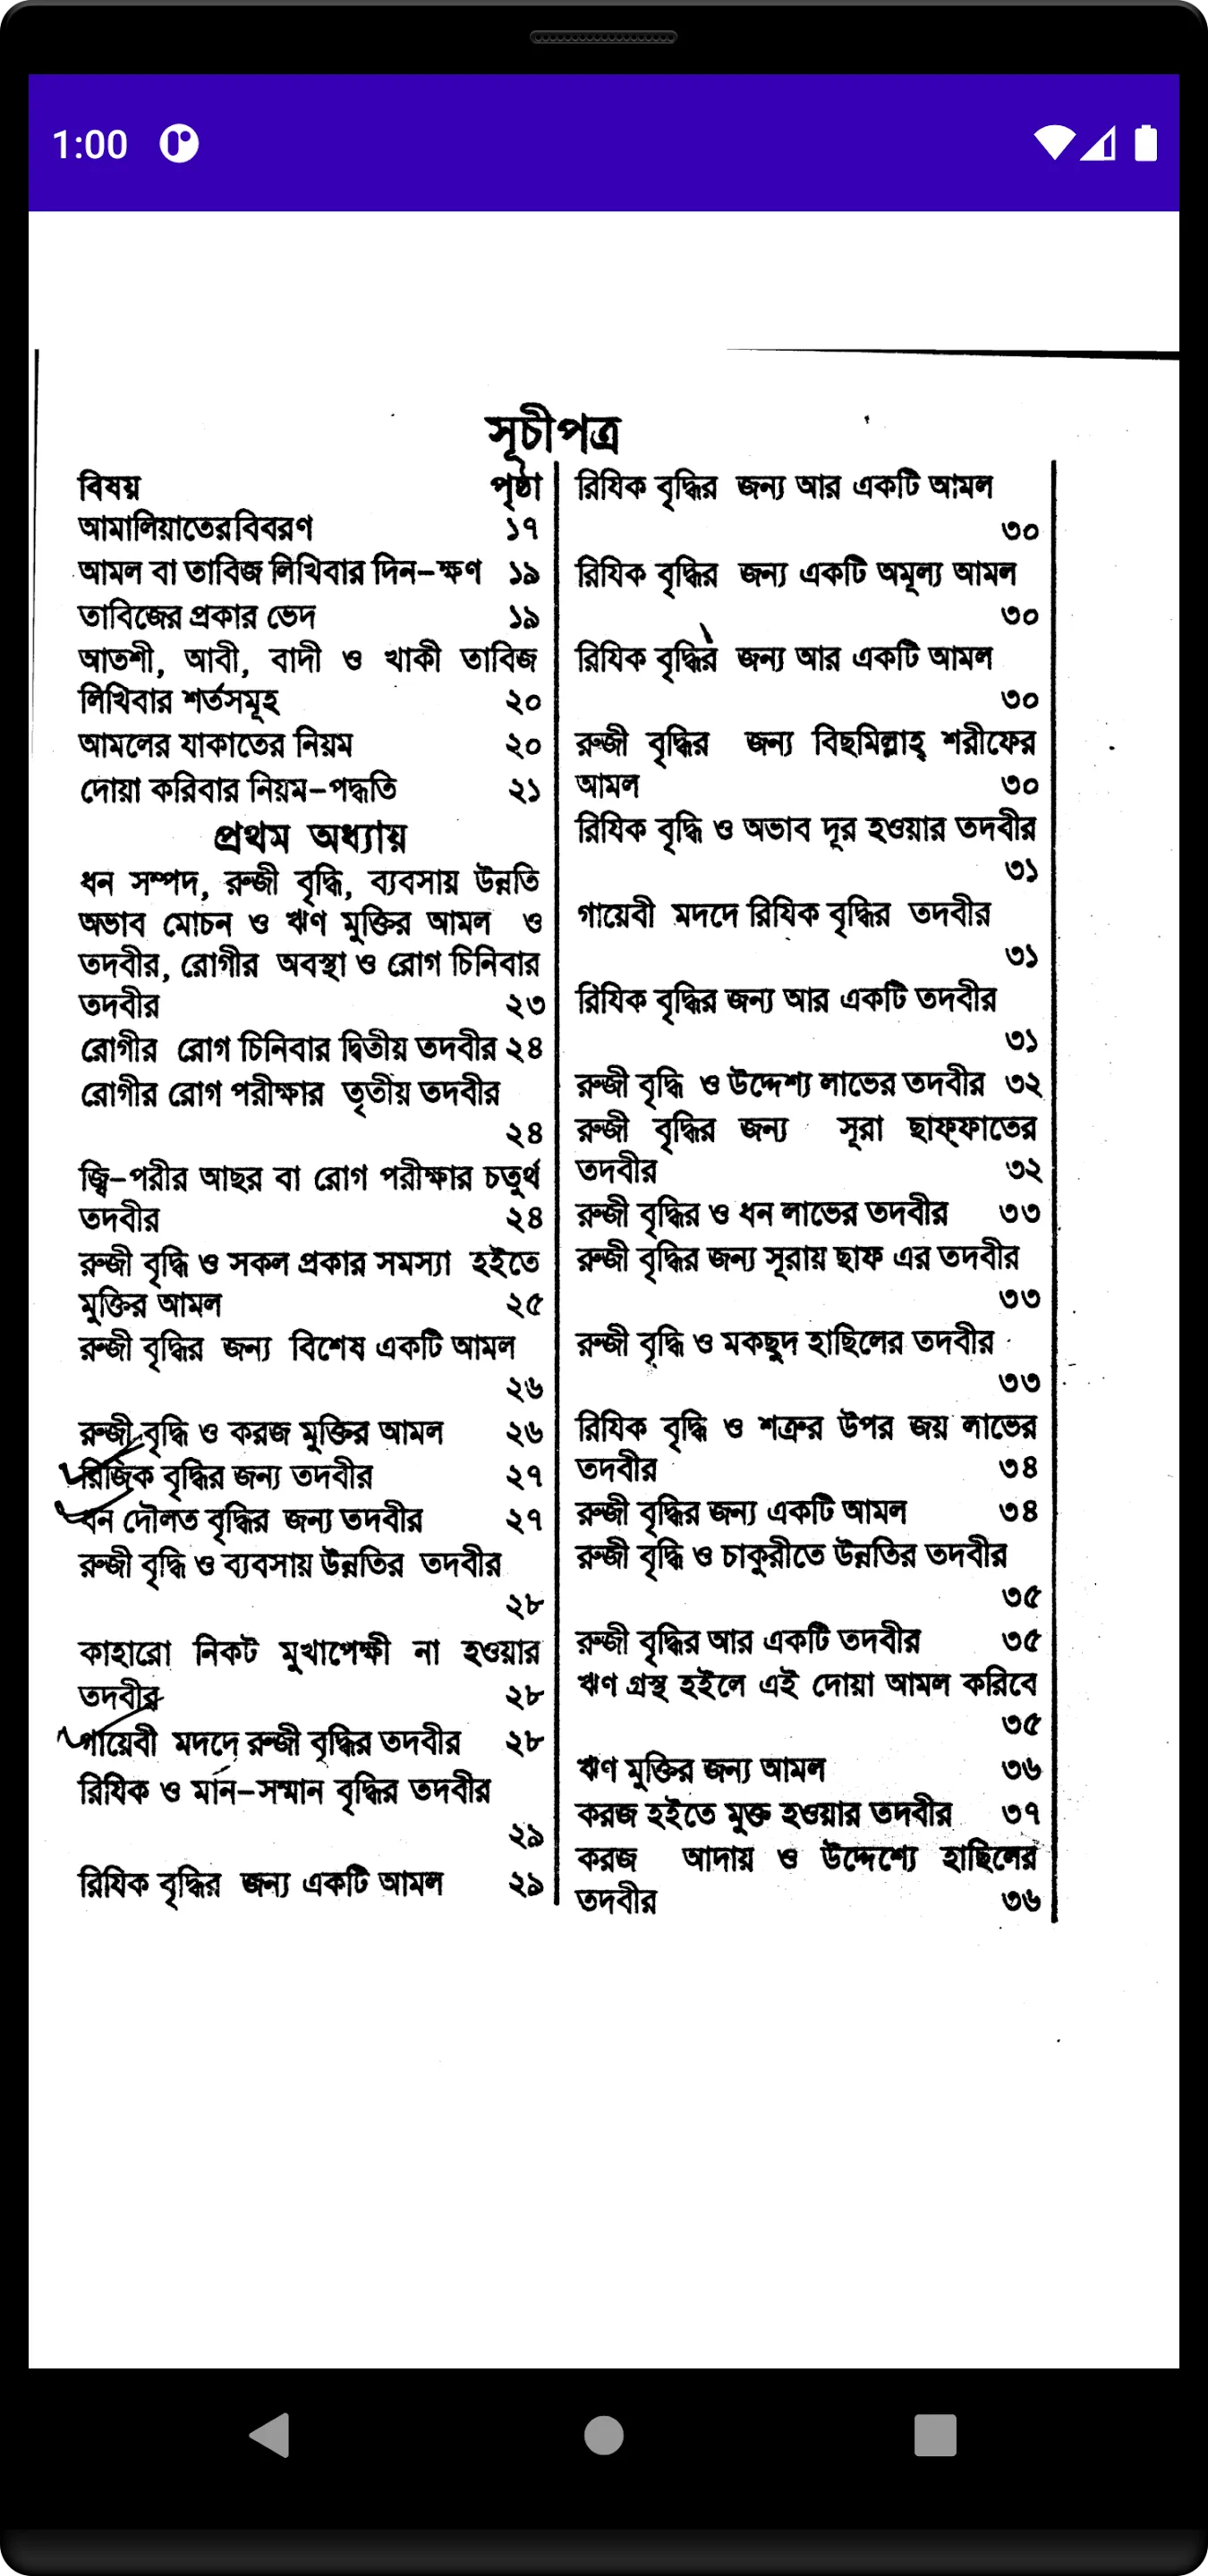 1:00
সূচীপত্র
বিষয় পৃষ্ঠা
আমালিয়াতের বিবরণ ১৭
আমল বা তাবিজ লিখিবার দিন-ক্ষণ ১৯
তাবিজের প্রকার ভেদ ১৯
আতশী, আবী, বাদী ও খাকী তাবিজ
লিখিবার শর্তসমূহ ২০
আমলের যাকাতের নিয়ম ২০
দোয়া করিবার নিয়ম-পদ্ধতি ২১
প্রথম অধ্যায়
ধন সম্পদ, রুজী বৃদ্ধি, ব্যবসায় উন্নতি
অভাব মোচন ও ঋণ মুক্তির আমল ও
তদবীর, রোগীর অবস্থা ও রোগ চিনিবার
তদবীর ২৩
রোগীর রোগ চিনিবার দ্বিতীয় তদবীর ২৪
রোগীর রোগ পরীক্ষার তৃতীয় তদবীর
২৪
জ্বি-পরীর আছর বা রোগ পরীক্ষার চতুর্থ
তদবীর ২৪
রুজী বৃদ্ধি ও সকল প্রকার সমস্যা হইতে
মুক্তির আমল ২৫
রুজী বৃদ্ধির জন্য বিশেষ একটি আমল
২৬
রুজী বৃদ্ধি ও করজ মুক্তির আমল ২৬
রিজিক বৃদ্ধির জন্য তদবীর ২৭
ধন দৌলত বৃদ্ধির জন্য তদবীর ২৭
রুজী বৃদ্ধি ও ব্যবসায় উন্নতির তদবীর
২৮
কাহারো নিকট মুখাপেক্ষী না হওয়ার
তদবীর ২৮
গায়েবী মদদে রুজী বৃদ্ধির তদবীর ২৮
রিযিক ও মান-সম্মান বৃদ্ধির তদবীর
২৯
রিযিক বৃদ্ধির জন্য একটি আমল ২৯
রিযিক বৃদ্ধির জন্য আর একটি আমল
৩০
রিযিক বৃদ্ধির জন্য একটি অমূল্য আমল
৩০
রিযিক বৃদ্ধির জন্য আর একটি আমল
৩০
রুজী বৃদ্ধির জন্য বিছমিল্লাহ্ শরীফের
আমল ৩০
রিযিক বৃদ্ধি ও অভাব দূর হওয়ার তদবীর
৩১
গায়েবী মদদে রিযিক বৃদ্ধির তদবীর
৩১
রিযিক বৃদ্ধির জন্য আর একটি তদবীর
৩১
রুজী বৃদ্ধি ও উদ্দেশ্য লাভের তদবীর ৩২
রুজী বৃদ্ধির জন্য সূরা ছাফ্ফাতের
তদবীর ৩২
রুজী বৃদ্ধির ও ধন লাভের তদবীর ৩৩
রুজী বৃদ্ধির জন্য সূরায় ছাফ এর তদবীর
৩৩
রুজী বৃদ্ধি ও মকছুদ হাছিলের তদবীর
৩৩
রিযিক বৃদ্ধি ও শত্রুর উপর জয় লাভের
তদবীর ৩৪
রুজী বৃদ্ধির জন্য একটি আমল ৩৪
রুজী বৃদ্ধি ও চাকুরীতে উন্নতির তদবীর
৩৫
রুজী বৃদ্ধির আর একটি তদবীর ৩৫
ঋণ গ্রস্থ হইলে এই দোয়া আমল করিবে
৩৫
ঋণ মুক্তির জন্য আমল ৩৬
করজ হইতে মুক্ত হওয়ার তদবীর ৩৭
করজ আদায় ও উদ্দেশ্যে হাছিলের
তদবীর ৩৬